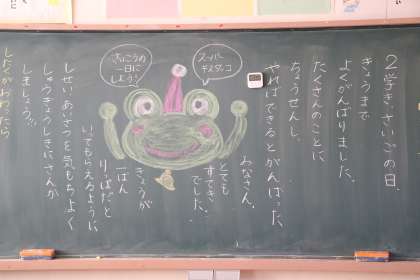 2学き、さいごの日。
きょうまで
よくがんばりました。
たくさんのことに
ちょうせんし、
やればできるとがんばった
みなさん、
とても
すてき
でした。
きょうが
一ばん
りっぱだと
いてもらえるように
しせい、あいさつを気もちよく
しゅうぎょうしきにさんか
しましょう!!
したくがおわったら
スーパー
さいこうの
一日に
しよう!